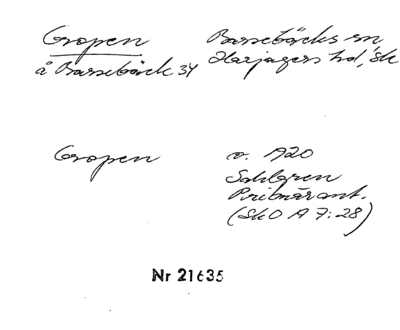 Gropen Barsebäcks sn,
å Barsebäck 34 Harjagers hd, Sk
Gropen o. 1920
Sahlgren
Primärant.
(SkO A 7:28)
Nr 21635